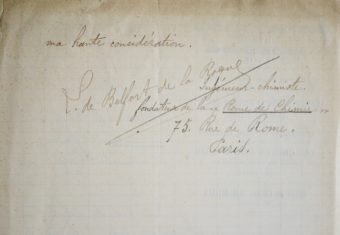 ma haute considération.
L. de Belfort de la Roque
Ingénieur-chimiste
fondateur de la « Revue de Chimie »
75. Rue de Rome.
Paris.